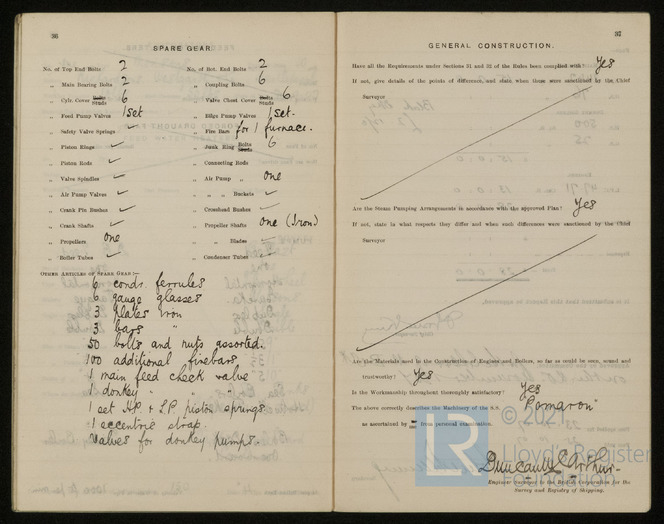 36
SPARE GEAR.
No. of Top End Bolts 2 No. of Bot. End Bolts 2
„ Main Bearing Bolts 2 „ Coupling Bolts 6
„ Cylr. Cover Bolts Studs 6 „ Valve Chest Cover Bolts Studs 6
„ Feed Pump Valves 1 set „ Bilge Pump Valves 1 set.
„ Safety Valve Springs ✓ „ Fire Bars for 1 furnace.
„ Piston Rings ✓ „ Junk Ring Bolts Studs 6
„ Piston Rods ✓ „ Connecting Rods
„ Valve Spindles ✓ „ Air Pump „ one
„ Air Pump Valves ✓ „ „ „ Buckets ✓
„ Crank Pin Bushes ✓ „ Crosshead Bushes ✓
„ Crank Shafts ✓ „ Propeller Shafts one (Iron)
„ Propellers one „ „ Blades ✓
„ Boiler Tubes ✓ „ Condenser Tubes ✓
OTHER ARTICLES OF SPARE GEAR:—
6 condr. ferrules
6 gauge glasses
3 plates iron
3 bars "
50 bolts and nuts assorted.
100 additional firebars
1 main feed check valve
1 donkey " " "
1 set H.P. & L.P. piston springs
1 eccentric strap.
Valves for donkey pumps.
37
GENERAL CONSTRUCTION.
Have all the Requirements under Sections 31 and 32 of the Rules been complied with? Yes
If not, give details of the points of difference, and state when these were sanctioned by the Chief
Surveyor
Are the Steam Pumping Arrangements in accordance with the approved Plan? Yes
If not, state in what respects they differ and when such differences were sanctioned by the Chief
Surveyor
Are the Materials used in the Construction of Engines and Boilers, so far as could be seen, sound and
trustworthy? Yes
Is the Workmanship throughout thoroughly satisfactory? Yes
The above correctly describes the Machinery of the S.S. "Pomaron"
as ascertained by from personal examination.
© 2021
LR
Lloyd's Register
Foundation
Engineer Surveyor to the British Corporation for the
Survey and Registry of Shipping.